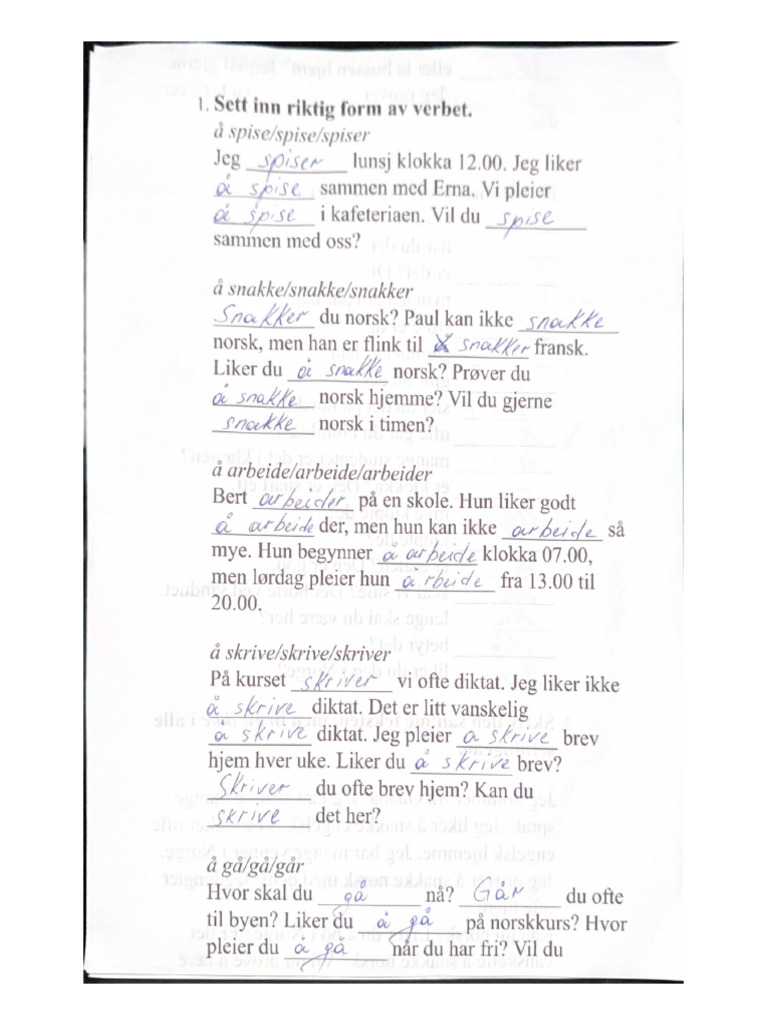 1. Sett inn riktig form av verbet.
å spise/spise/spiser
Jeg spiser lunsj klokka 12.00. Jeg liker
å spise sammen med Erna. Vi pleier
å spise i kafeteriaen. Vil du spise
sammen med oss?
å snakke/snakke/snakker
Snakker du norsk? Paul kan ikke snakke
norsk, men han er flink til snakker fransk.
Liker du å snakke norsk? Prøver du
å snakke norsk hjemme? Vil du gjerne
snakke norsk i timen?
å arbeide/arbeide/arbeider
Bert arbeider på en skole. Hun liker godt
å arbeide der, men hun kan ikke arbeide så
mye. Hun begynner å arbeide klokka 07.00,
men lørdag pleier hun å rbeide fra 13.00 til
20.00.
å skrive/skrive/skriver
På kurset skriver vi ofte diktat. Jeg liker ikke
å skrive diktat. Det er litt vanskelig
a skrive diktat. Jeg pleier a skrive brev
hjem hver uke. Liker du å skrive brev?
Skriver du ofte brev hjem? Kan du
skrive det her?
å gå/gå/går
Hvor skal du gå nå? Går du ofte
til byen? Liker du å gå på norskkurs? Hvor
pleier du å gå når du har fri? Vil du